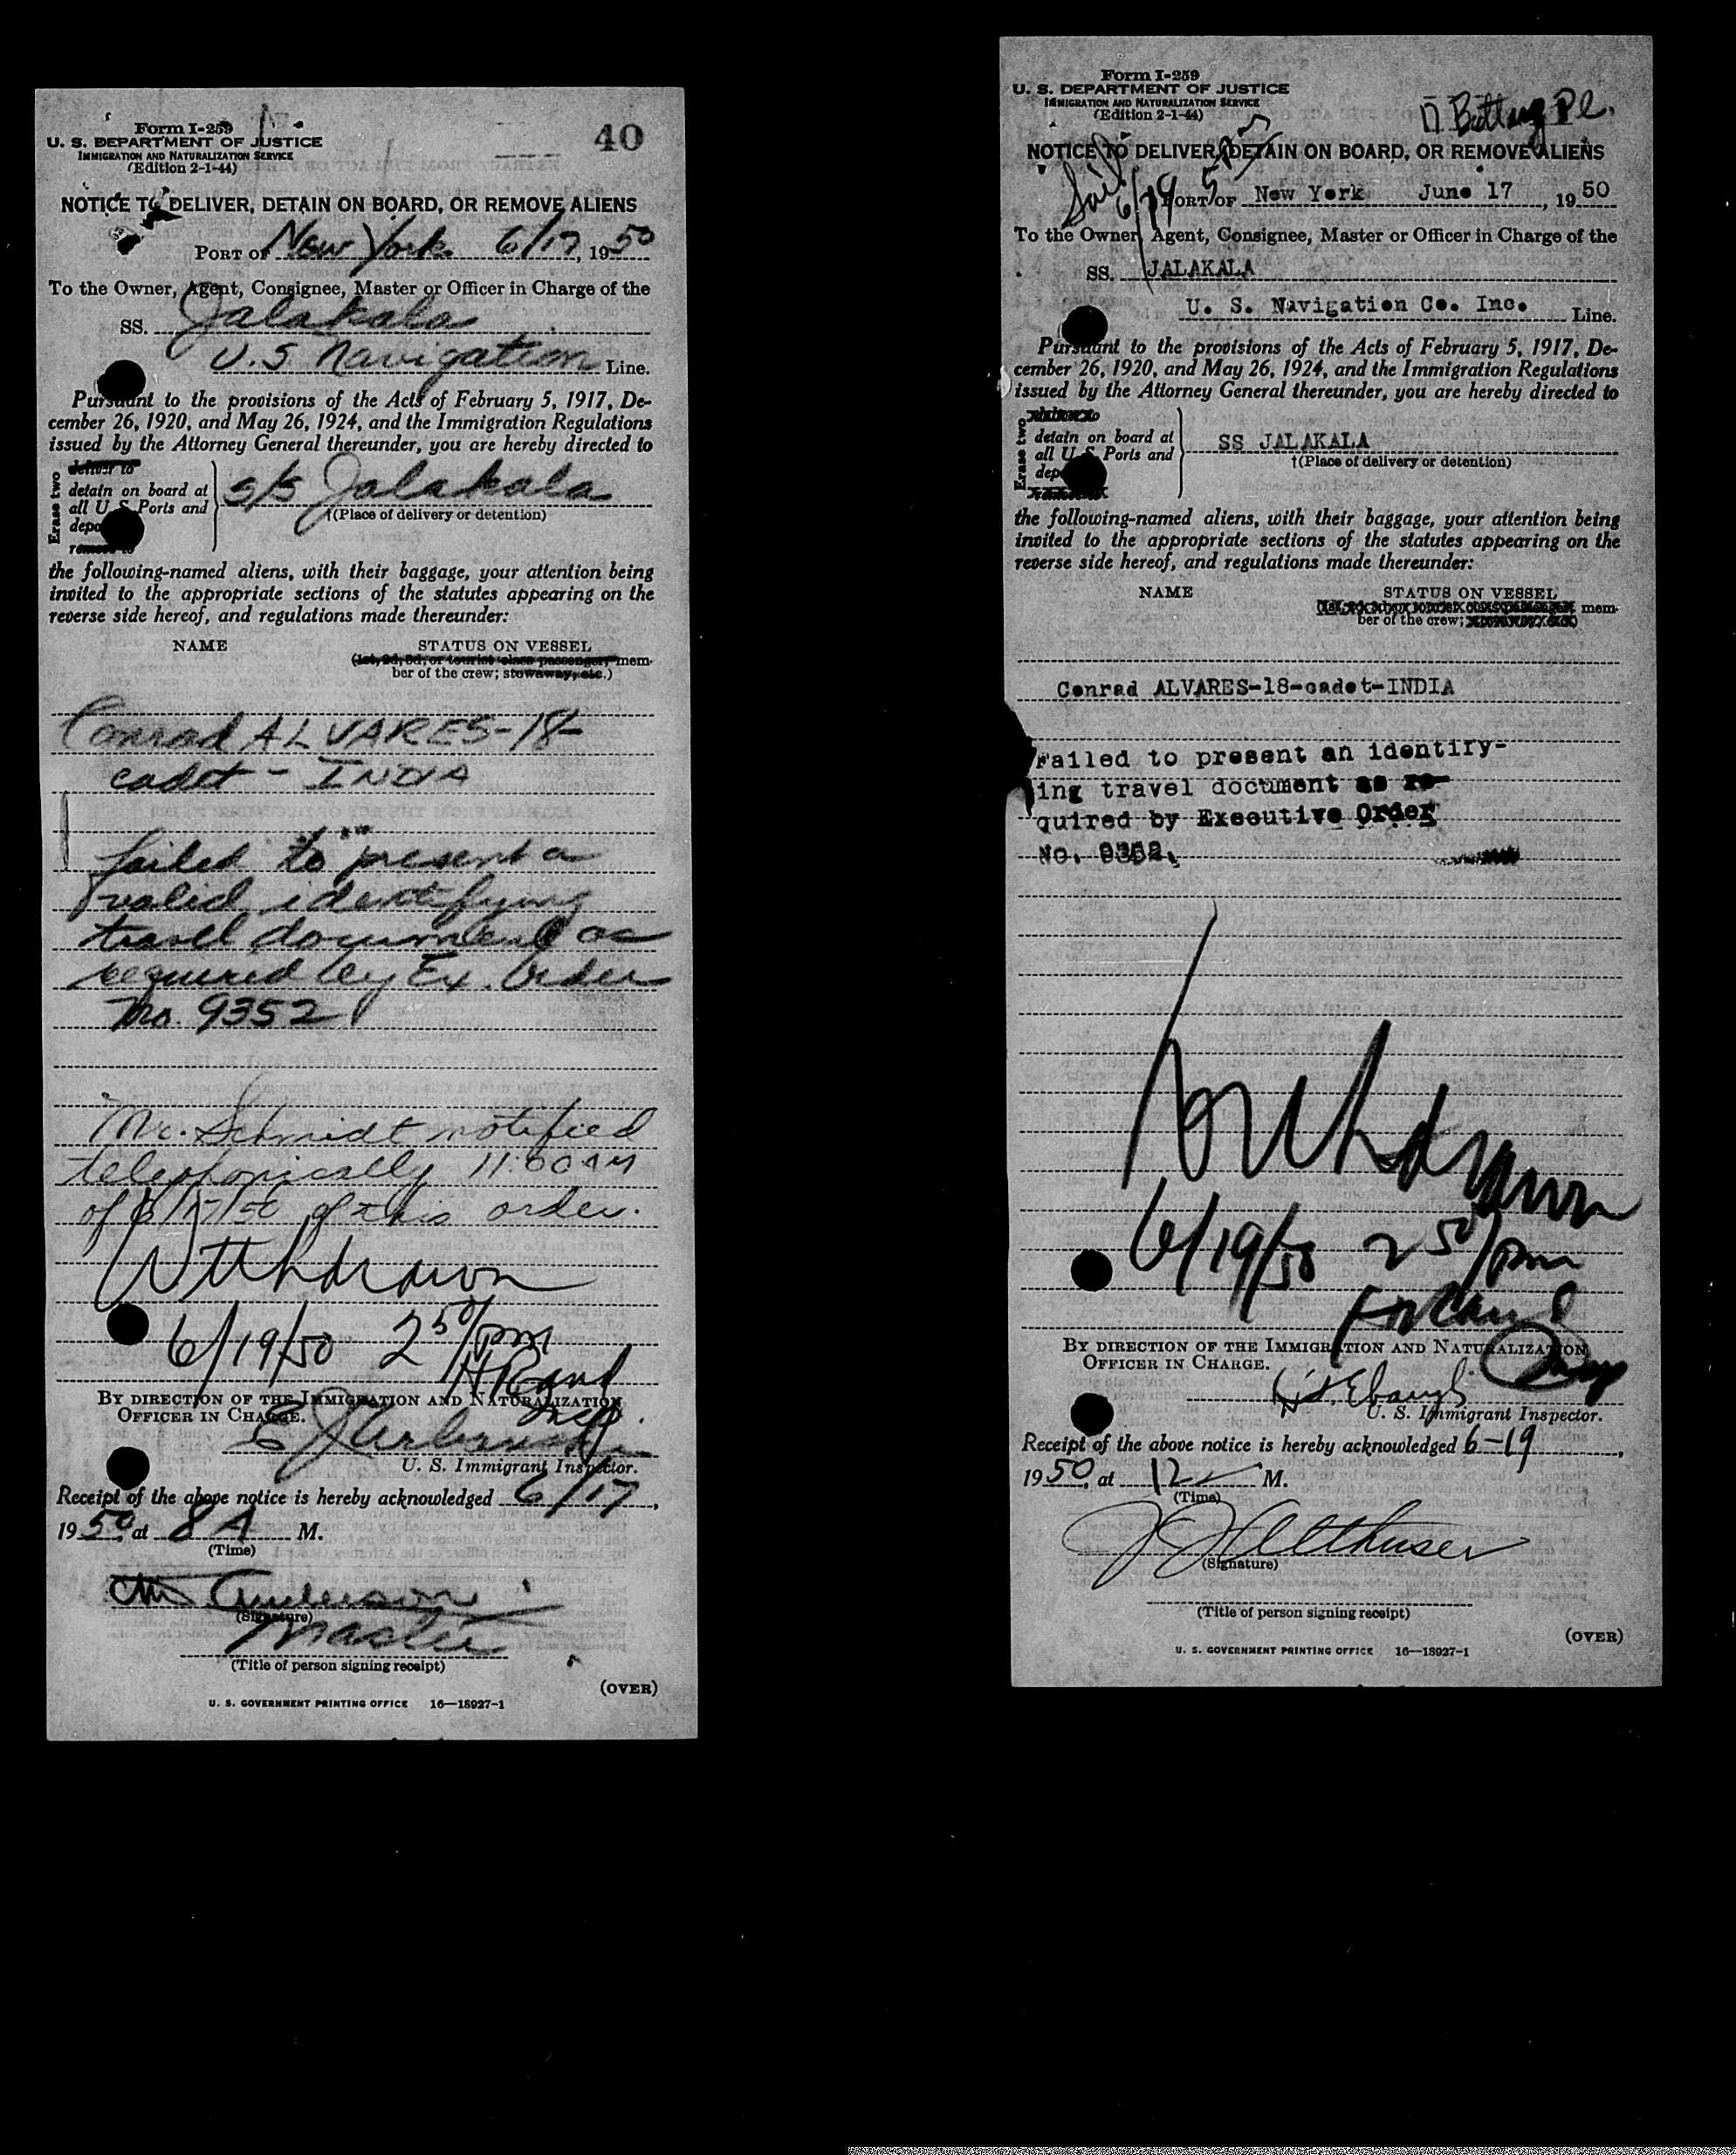 Form I-259
U. S. DEPARTMENT OF JUSTICE
IMMIGRATION AND NATURALIZATION SERVICE
(Edition 2-1-44)
40
NOTICE TO DELIVER, DETAIN ON BOARD, OR REMOVE ALIENS
PORT OF New York 6/17, 1950
To the Owner, Agent, Consignee, Master or Officer in Charge of the
SS. Jalakala
U.S Navigation Line.
Pursuant to the provisions of the Acts of February 5, 1917, De-
cember 26, 1920, and May 26, 1924, and the Immigration Regulations
issued by the Attorney General thereunder, you are hereby directed to
Erase two
deliver to
detain on board at
all U. S. Ports and
depo
remove to
s/s Jalakala
†(Place of delivery or detention)
the following-named aliens, with their baggage, your attention being
invited to the appropriate sections of the statutes appearing on the
reverse side hereof, and regulations made thereunder:
NAME STATUS ON VESSEL
(1st, 2d, 3d, or tourist class passenger, mem-
ber of the crew; stowaway, etc.)
Conrad ALVARES-18-
cadet - INDIA
failed to present a
valid identifying
travel document as
required by Ex. Order
No. 9352
Mr. Schmidt notified
telephonically 11:00 AM
of 6/17/50 of this order.
Withdrawn
6/19/50 2 50/pm
BY DIRECTION OF THE IMMIGRATION AND NATURALIZATION
OFFICER IN CHARGE.
U. S. Immigrant Inspector.
Receipt of the above notice is hereby acknowledged 6/17,
1950, at 8 A M.
(Time)
Anderson
(Signature)
Master
(Title of person signing receipt)
(OVER)
U. S. GOVERNMENT PRINTING OFFICE 16—18927-1
Form I-259
U. S. DEPARTMENT OF JUSTICE
IMMIGRATION AND NATURALIZATION SERVICE
(Edition 2-1-44)
17 Battery Pl.
NOTICE TO DELIVER, DETAIN ON BOARD, OR REMOVE ALIENS
Sail 6/19 5 pm
PORT OF New York June 17, 1950
To the Owner, Agent, Consignee, Master or Officer in Charge of the
SS. JALAKALA
U. S. Navigation Co. Inc. Line.
Pursuant to the provisions of the Acts of February 5, 1917, De-
cember 26, 1920, and May 26, 1924, and the Immigration Regulations
issued by the Attorney General thereunder, you are hereby directed to
Erase two
detain on board at
all U. S. Ports and
dep
SS JALAKALA
†(Place of delivery or detention)
the following-named aliens, with their baggage, your attention being
invited to the appropriate sections of the statutes appearing on the
reverse side hereof, and regulations made thereunder:
NAME STATUS ON VESSEL
mem-
ber of the crew;
Conrad ALVARES-18-cadet-INDIA
Failed to present an identify-
ing travel document as re-
quired by Executive Order
No. 9352.
Withdrawn
6/19/50 2 50/pm
BY DIRECTION OF THE IMMIGRATION AND NATURALIZATION
OFFICER IN CHARGE.
U. S. Immigrant Inspector.
Receipt of the above notice is hereby acknowledged 6-19,
1950, at 12 M.
(Time)
(Signature)
(Title of person signing receipt)
(OVER)
U. S. GOVERNMENT PRINTING OFFICE 16—18927-1